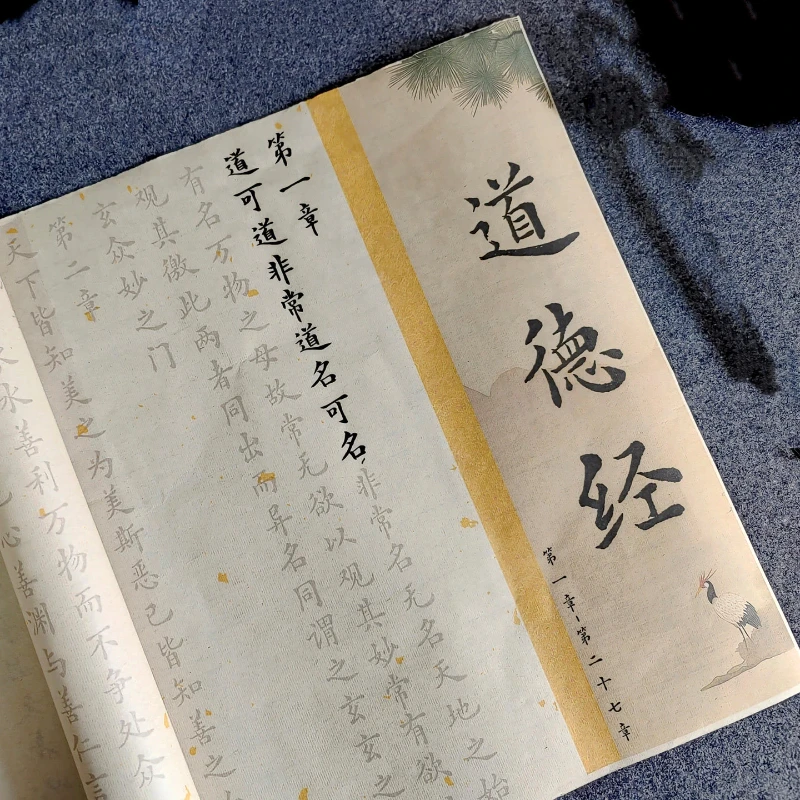 道德经
第一章-第二十七章
第一章
道可道非常道名可名非常名无名天地之始
有名万物之母故常无欲以观其妙常有欲
观其徼此两者同出而异名同谓之玄玄之
玄众妙之门
第二章
天下皆知美之为美斯恶已皆知善之
水善利万物而不争处众
心善渊与善仁言